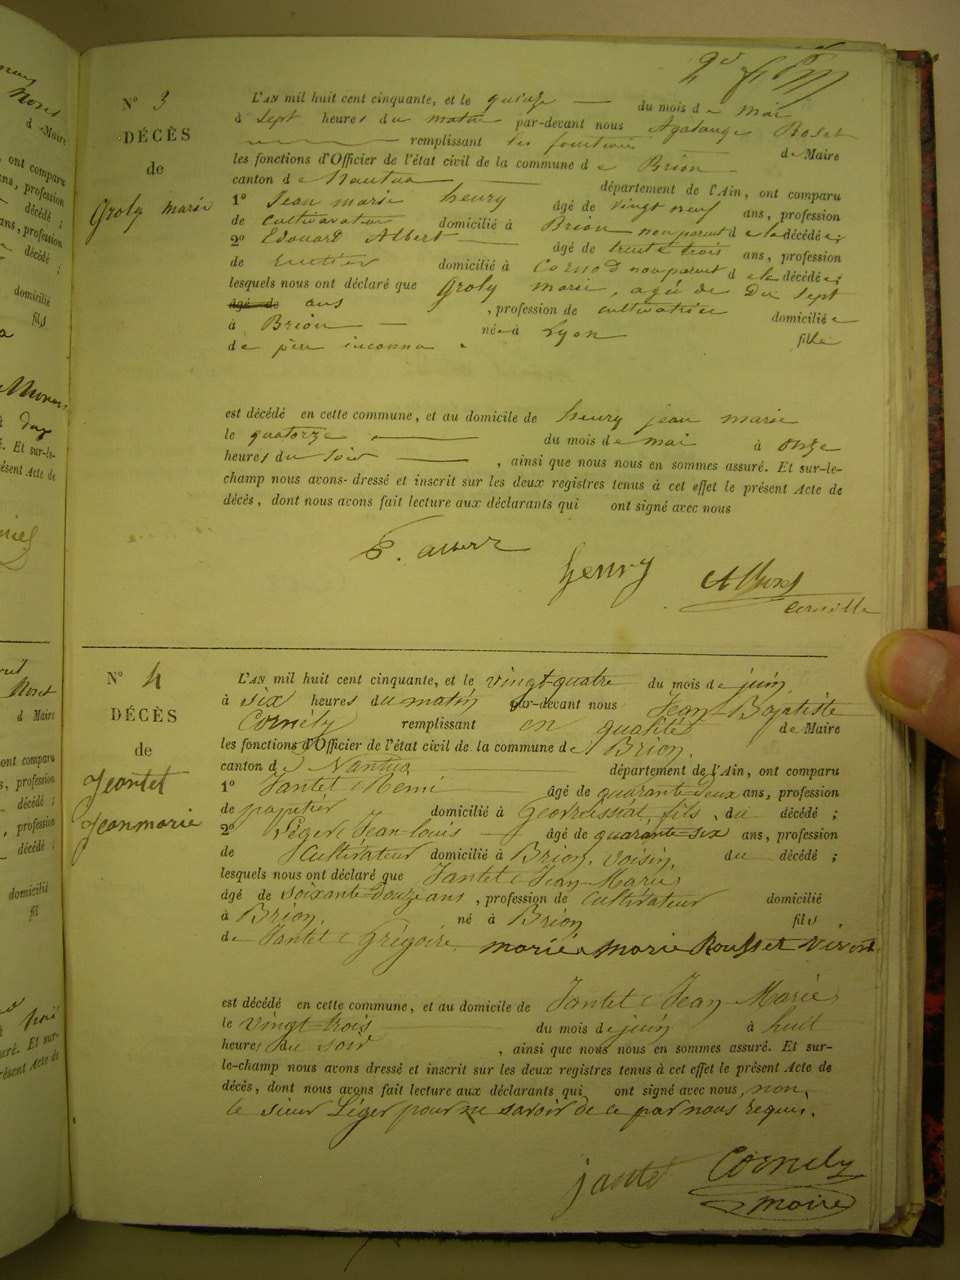 2d
N° 3
DÉCÈS
de
Groly marie
L'AN mil huit cent cinquante, et le quinze du mois de mai
à sept heures du matin par-devant nous Agatange Rosset
remplissant les fonctions de Maire
les fonctions d'Officier de l'état civil de la commune de Brion
canton de Nantua département de l'Ain, ont comparu
1° Jean marie henry âgé de vingt neuf ans, profession
de cultivateur domicilié à Brion non parent de la décédée;
2° Edouard Albert âgé de trente trois ans, profession
de domicilié à Cornod non parent de la décédée;
lesquels nous ont déclaré que Groly marie, agée de dix sept
âgé de ans, profession de cultivatrice domiciliée
à Brion née à Lyon fille
de père inconnu.
est décédé en cette commune, et au domicile de henry jean marie
le quatorze du mois de mai à onze
heures du soir, ainsi que nous nous en sommes assuré. Et sur-le-
champ nous avons dressé et inscrit sur les deux registres tenus à cet effet le présent Acte de
décès, dont nous avons fait lecture aux déclarants qui ont signé avec nous
E. albert
henry
N° 4
DÉCÈS
de
Jeantet
Jeanmarie
L'AN mil huit cent cinquante, et le vingt-quatre du mois de juin,
à six heures du matin par-devant nous Jean-Baptiste
Cornély remplissant en qualité de Maire
les fonctions d'Officier de l'état civil de la commune de Brion,
canton de Nantua département de l'Ain, ont comparu
1° Jantet Remi âgé de quarante deux ans, profession
de papetier domicilié à Géovreissiat, fils, du décédé;
2° Léger Jean-louis âgé de quarante-six ans, profession
de cultivateur domicilié à Brion, voisin, du décédé;
lesquels nous ont déclaré que Jantet Jean-Marie
âgé de soixante-douze ans, profession de cultivateur domicilié
à Brion, né à Brion fils
de Jantet Grégoire, marié a marie Rousset vivont.
est décédé en cette commune, et au domicile de Jantet Jean-Marie
le vingt-trois du mois de juin à huit
heures du soir, ainsi que nous nous en sommes assuré. Et sur-
le-champ nous avons dressé et inscrit sur les deux registres tenus à cet effet le présent Acte de
décès, dont nous avons fait lecture aux déclarants qui ont signé avec nous, non,
le sieur Léger pour ne savoir de ce par nous requis.
jantet Cornely
maire